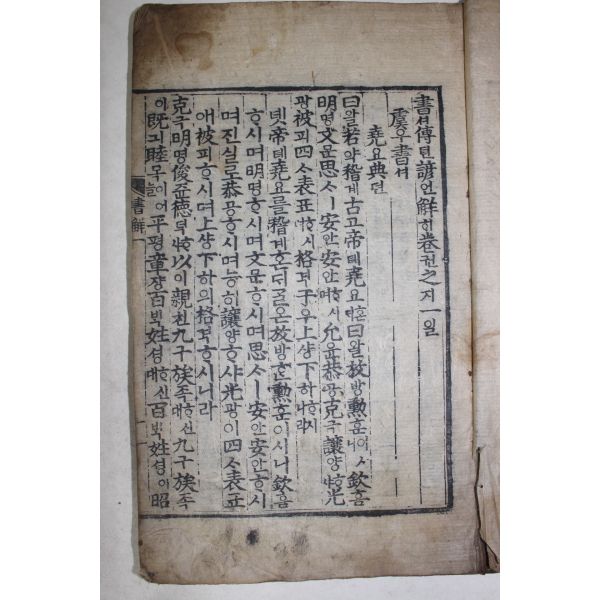 書셔傳뎐諺언解ᄒᆡ卷권之지一일
虞우書셔
堯요典뎐
曰왈若약稽계古고帝뎨堯요ᄒᆞᆫᄃᆡ曰왈放방勳훈이시니欽흠
明명文문思ᄉᆞㅣ安안安안ᄒᆞ시며允윤恭공克극讓양ᄒᆞ샤光
광被피四ᄉᆞ表표ᄒᆞ시며格격于우上샹下하ᄒᆞ시니라
녯帝뎨堯요를稽계혼ᄃᆡᄀᆞᆯ온放방ᄒᆞᆫ勳훈이시니欽흠
ᄒᆞ시며明명ᄒᆞ시며文문ᄒᆞ시며思ᄉᆞㅣ安안安안ᄒᆞ시
며진실로恭공ᄒᆞ시며능히讓양ᄒᆞ샤光광이四ᄉᆞ表표
애被피ᄒᆞ시며上샹下하의格격ᄒᆞ시니라
克극明명俊쥰德덕ᄒᆞ샤以이親친九구族족ᄒᆞ신대九구族족
이旣긔睦목이어늘平평章쟝百ᄇᆡᆨ姓셩ᄒᆞ신대百ᄇᆡᆨ姓셩이昭
書解 一